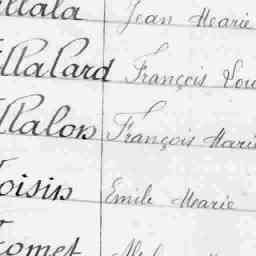 llala Jean Marie
llalard François Lou
llalon François Mari
oisin Emile Marie
omet